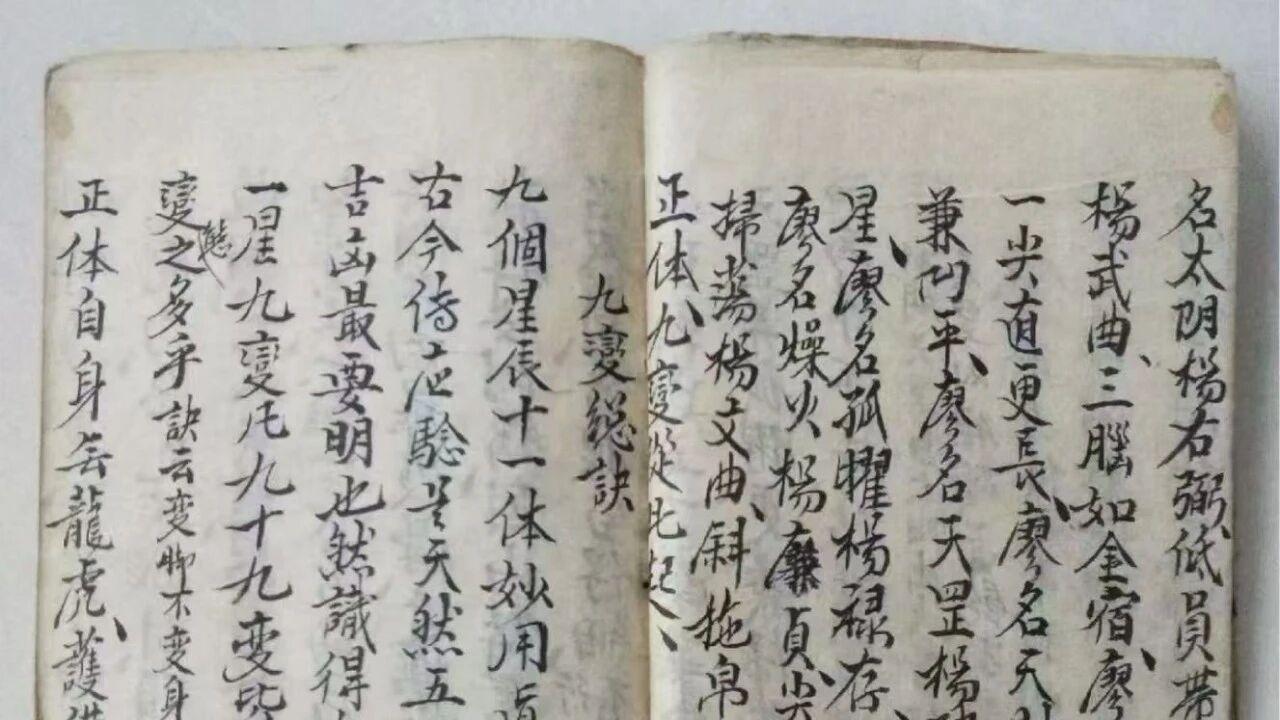 名太阴楊右弼低員帶
楊武曲、三腦如金宿、廖
一尖道更長、廖名天
兼凹平、廖名天罡楊
星、廖名孤曜楊禄存
廖名燥火楊廉貞、尖
掃蕩楊文曲、斜拖帛
正体九變從此起、
九變總訣
九個星辰十一体妙用
古今傳
驗 天然五
吉凶最要明也然識得
一星九變凡九十九变
變之多乎訣云变脚不变身
正体自身無龍虎、護